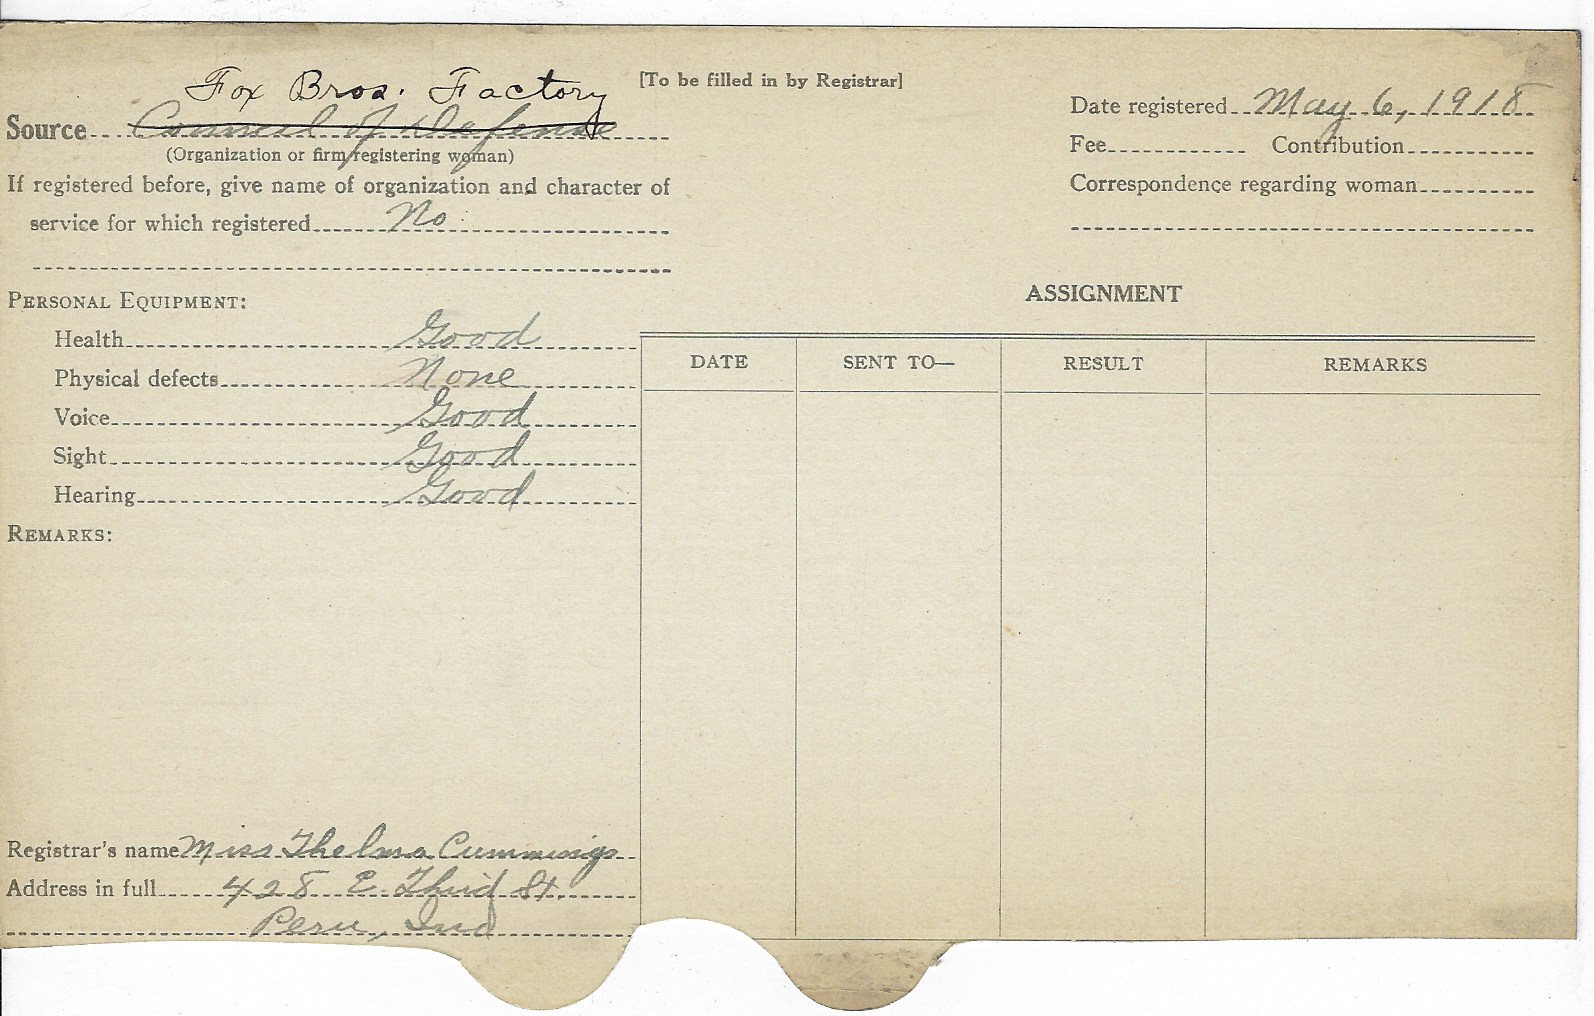 Fox Bros. Factory
[To be filled in by Registrar]
Source Council of Defense
(Organization or firm registering woman)
If registered before, give name of organization and character of
service for which registered No
Date registered May 6, 1918
Fee Contribution
Correspondence regarding woman
PERSONAL EQUIPMENT:
Health Good
Physical defects None
Voice Good
Sight Good
Hearing Good
REMARKS:
ASSIGNMENT
DATE SENT TO— RESULT REMARKS
Registrar's name Miss Thelma Cummings
Address in full 428 E. Third St.
Peru, Ind